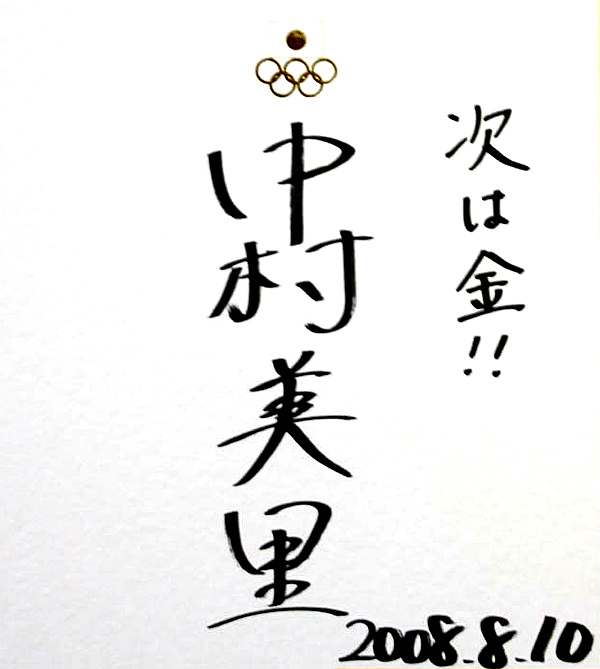 次は金!!
中村美里
2008.8.10